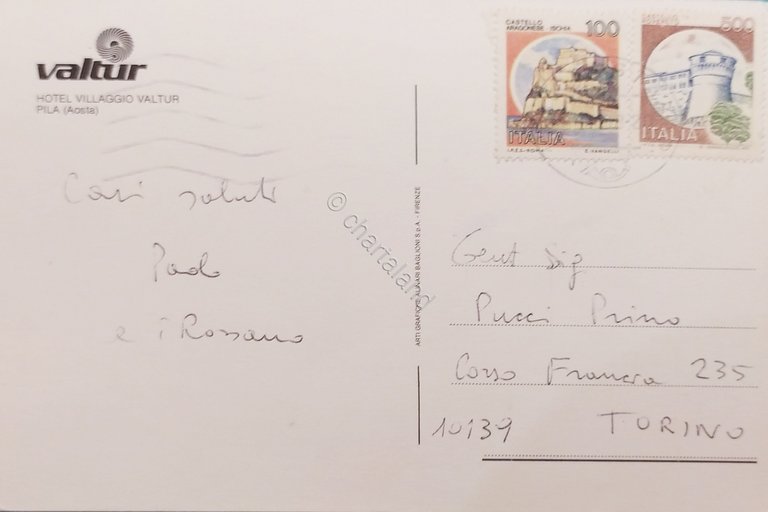 valtur
HOTEL VILLAGGIO VALTUR
PILA (Aosta)
CASTELLO
ARAGONESE ISCHIA
100
ITALIA
I.P.Z.S. - ROMA
500
ITALIA
Cari saluti
Paolo
e i Rossano
© chartaland
ARTI GRAFICHE ALINARI BAGLIONI S.p.A. - FIRENZE
Gent Sig
Pucci Primo
Corso Francia 235
10139 TORINO